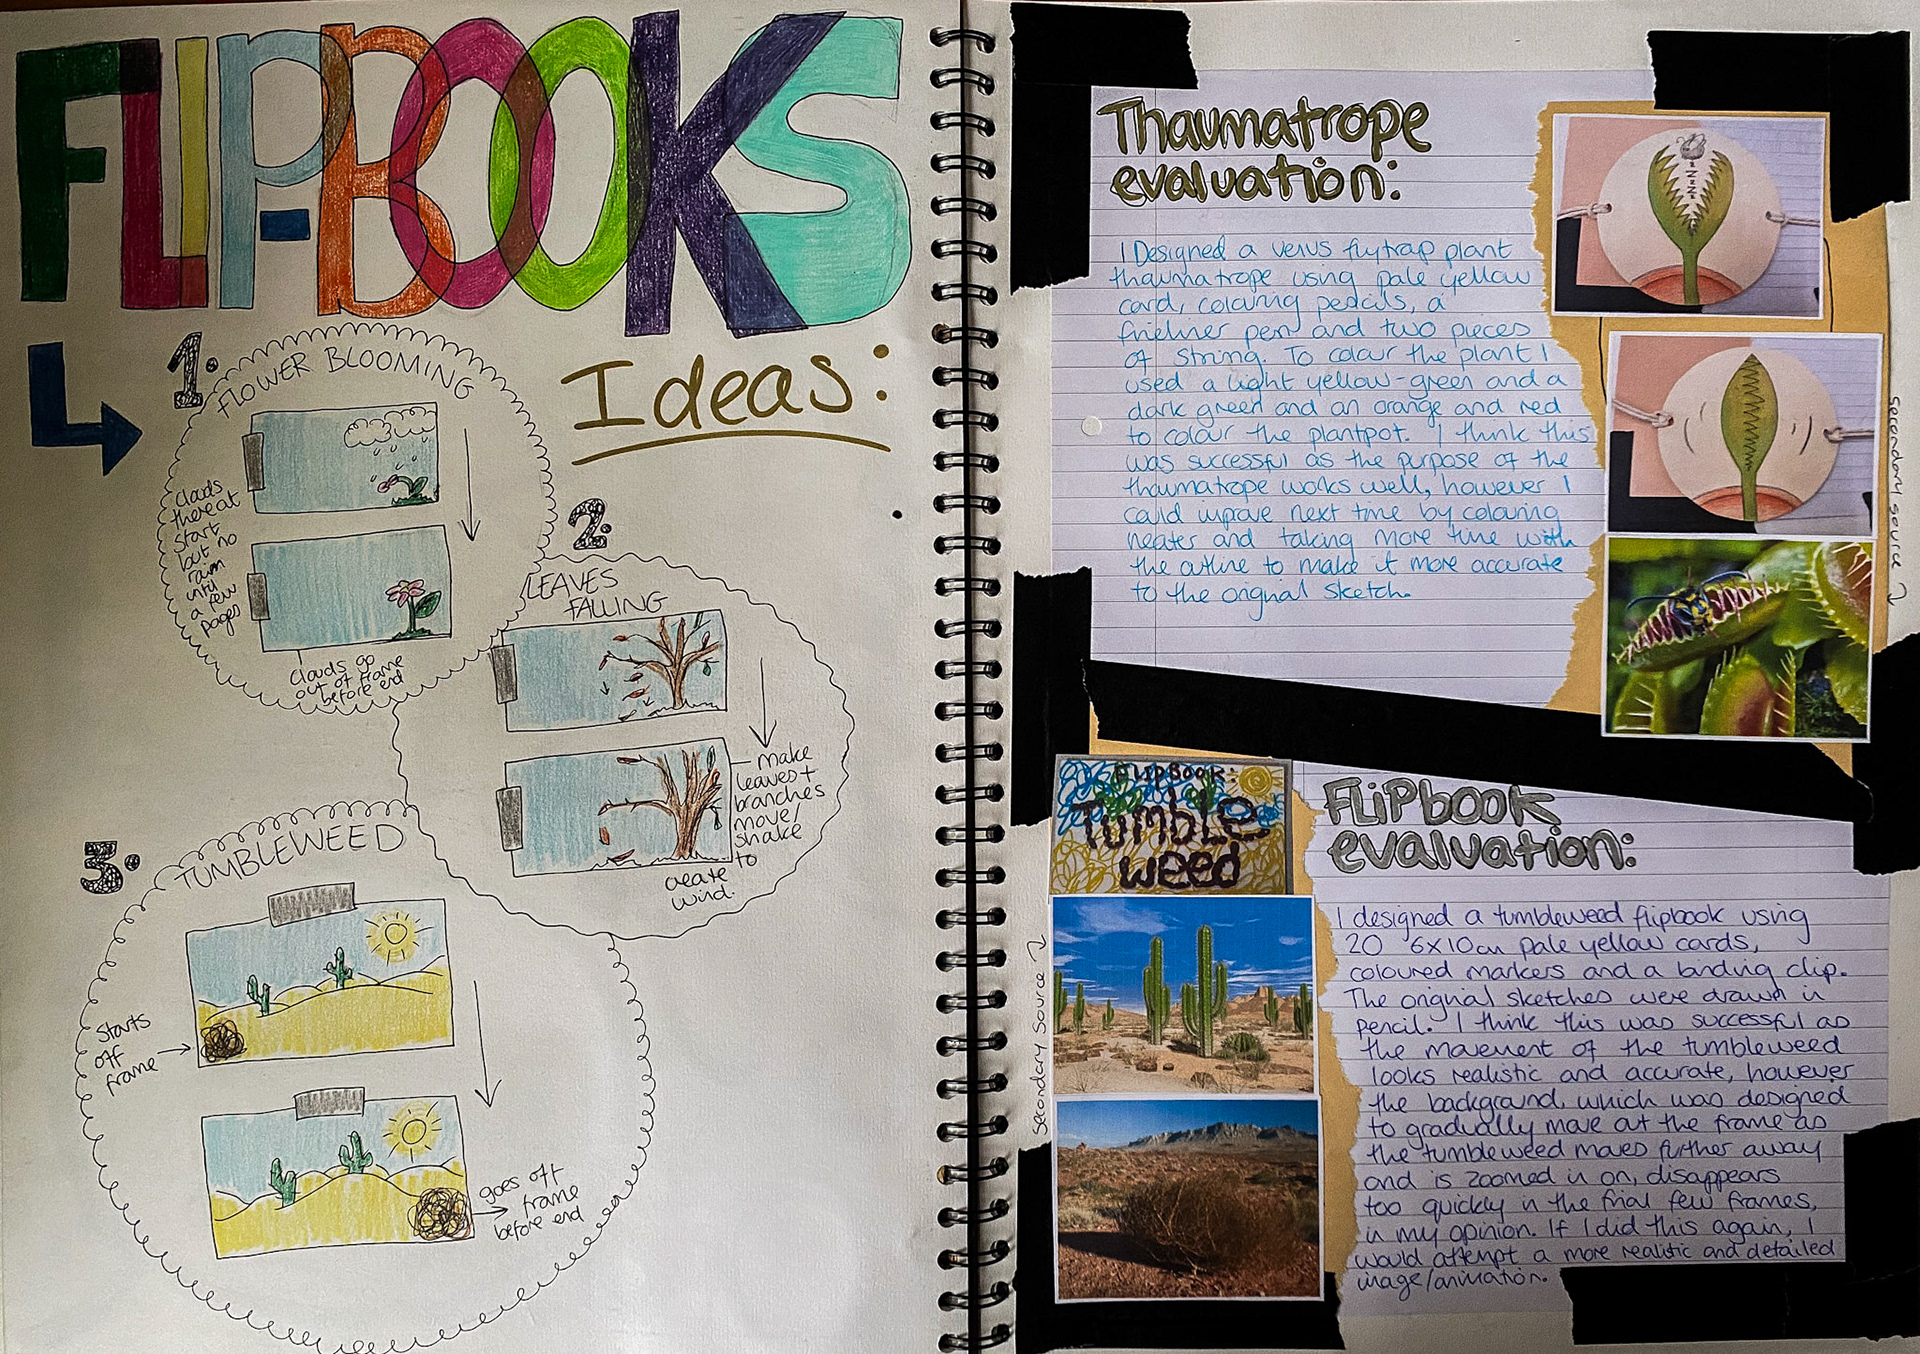 FLIPBOOKS
Ideas:
1.
FLOWER BLOOMING
clouds
there at
start
but no
rain
until
a few
pages
clouds go
out of frame
before end
2.
LEAVES
FALLING
make
leaves +
branches
move/
shake
to
create
wind.
3.
TUMBLEWEED
starts
off
frame
goes off
frame
before end
Thaumatrope
evaluation:
I Designed a venus flytrap plant
thaumatrope using pale yellow
card, colouring pencils, a
fineliner pen and two pieces
of string. To colour the plant I
used a light yellow-green and a
dark green and an orange and red
to colour the plantpot. I think this
was successful as the purpose of the
thaumatrope works well, however I
could improve next time by colouring
neater and taking more time with
the outline to make it more accurate
to the original sketch.
Secondary source
FLIPBOOK:
Tumble
weed
Secondary Source
FLiPbOOK
evaluation:
I designed a tumbleweed flipbook using
20 6x10cm pale yellow cards,
coloured markers and a binding clip.
The original sketches were drawn in
pencil. I think this was successful as
the movement of the tumbleweed
looks realistic and accurate, however
the background, which was designed
to gradually move out the frame as
the tumbleweed moves further away
and is zoomed in on, disappears
too quickly in the final few frames,
in my opinion. If I did this again, I
would attempt a more realistic and detailed
image/animation.